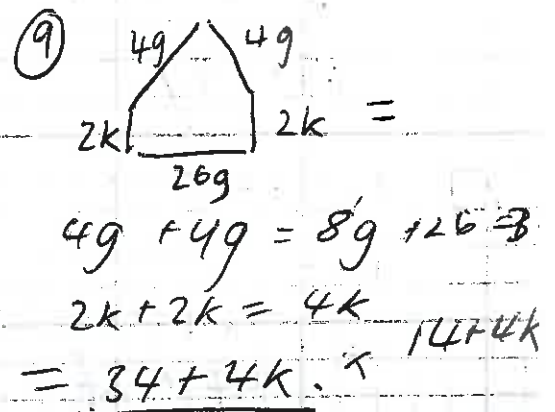 9
4g 4g
2k 2k =
26g
4g + 4g = 8g + 26 = 3
2k + 2k = 4k
14+4k
= 34 + 4k. x